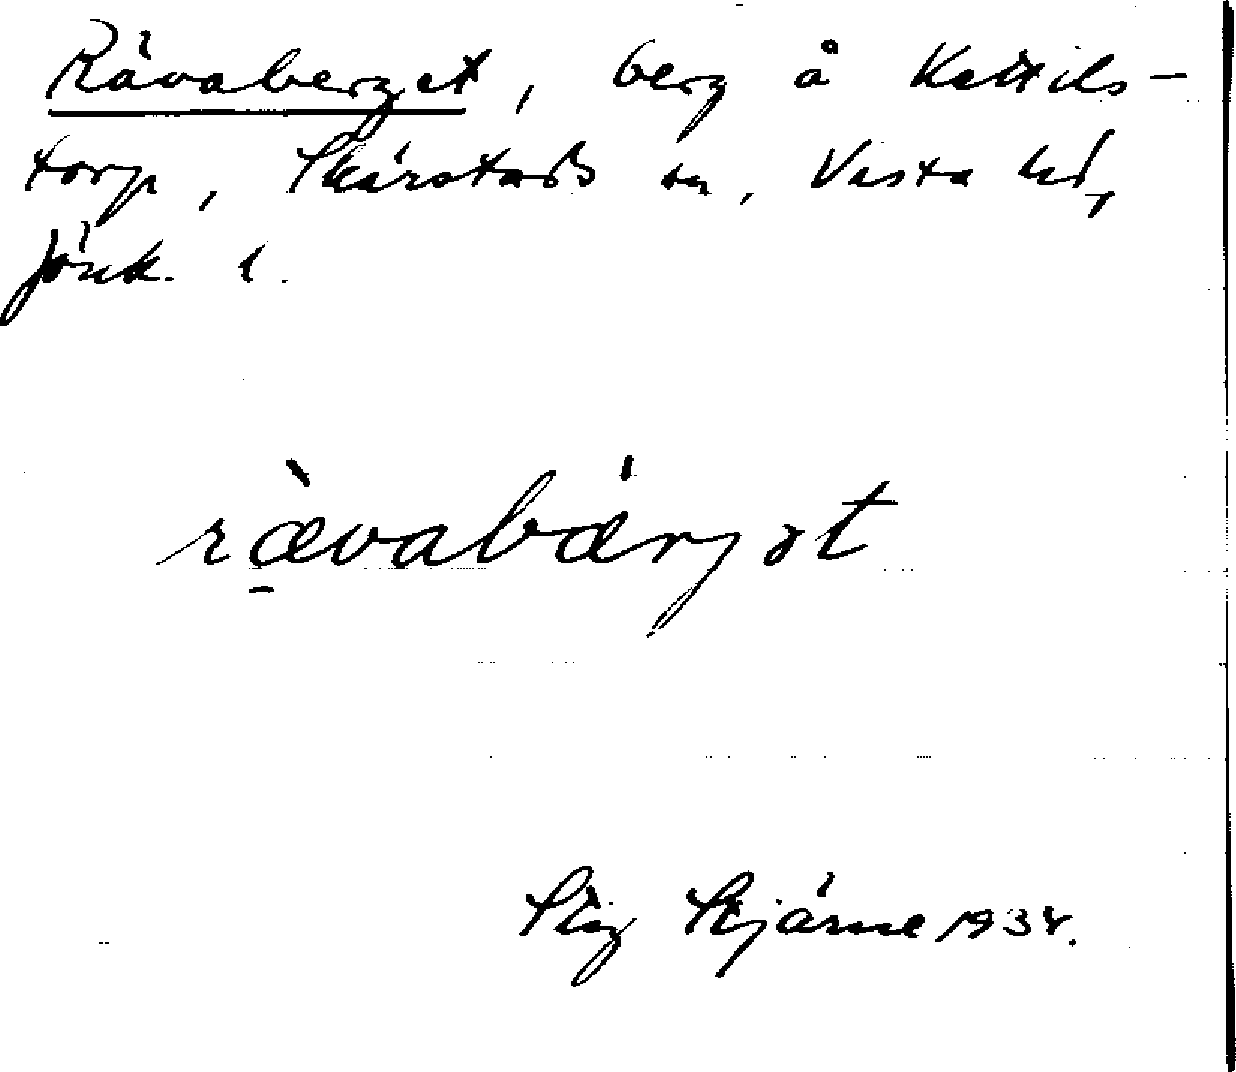 Rävaberget, berg å Kettils-
torp, Skärstads sn, Vista hd,
Jönk. l.
rævabärjət
Stig Stjärne 1934.